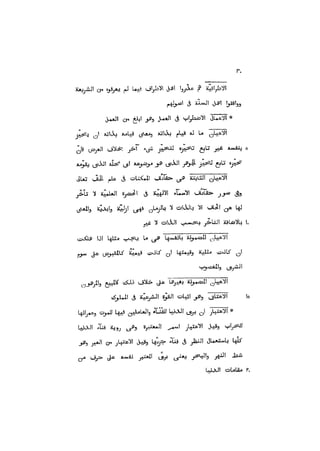 ٣٠
الاطرافيّة هم عذّروا اهل الاطراف فيما لم يعرفوه من الشريعة
ووافقوا اهل السنّة فى اصولهم
* الاعمال الاضطراب فى العمل وهو ابلغ من العمل
الاعيان ما له قيام بذاته ومعنى قيامه بذاته ان يتحيّز
٥ بنفسه غير تابع تحيّزه لتحيّز شىء آخر بخلاف العرض فانّ
تحيّزه تابع لتحيّز الجوهر الذى هو موضوعه اى محلّه الذى يقوّمه
الاعيان الثابتة هى حقائق الممكنات فى علم الحقّ تعالى
وهى صور حقائق الاسماء الالهيّة فى الحضرة العلميّة لا تأخّر
لها عن الحقّ الا بالذات لا بالزمان فهى ازليّة وابديّة والمعنى
١٠ بالاضافة التأخّر بحسب الذات لا غير
الاعيان المضمونة بانفسها هى ما يجب مثلها اذا هلكت
ان كانت مثلية وقيمتها ان كانت قيميّة كالمقبوض على سوم
الشرى والمغصوب
الاعيان المضمونة بغيرها على خلاف ذلك كالمبيع والمرهون
١٥ الاعتاق وهو اثبات القوّة الشرعيّة فى المملوك
* الاعتبار ان يرى الدنيا للفناء والعاملين فيها للموت وعمرانها
للخراب وقيل الاعتبار اسم المعتبرة وهى رؤية فناء الدنيا
كلّها باستعمال النظر فى فناء جزئها وقيل الاعتبار من العبر وهو
شطّ النهر والبحر يعنى يرى المعتبر نفسه على حرف من
٢٠ مقامات الدنيا